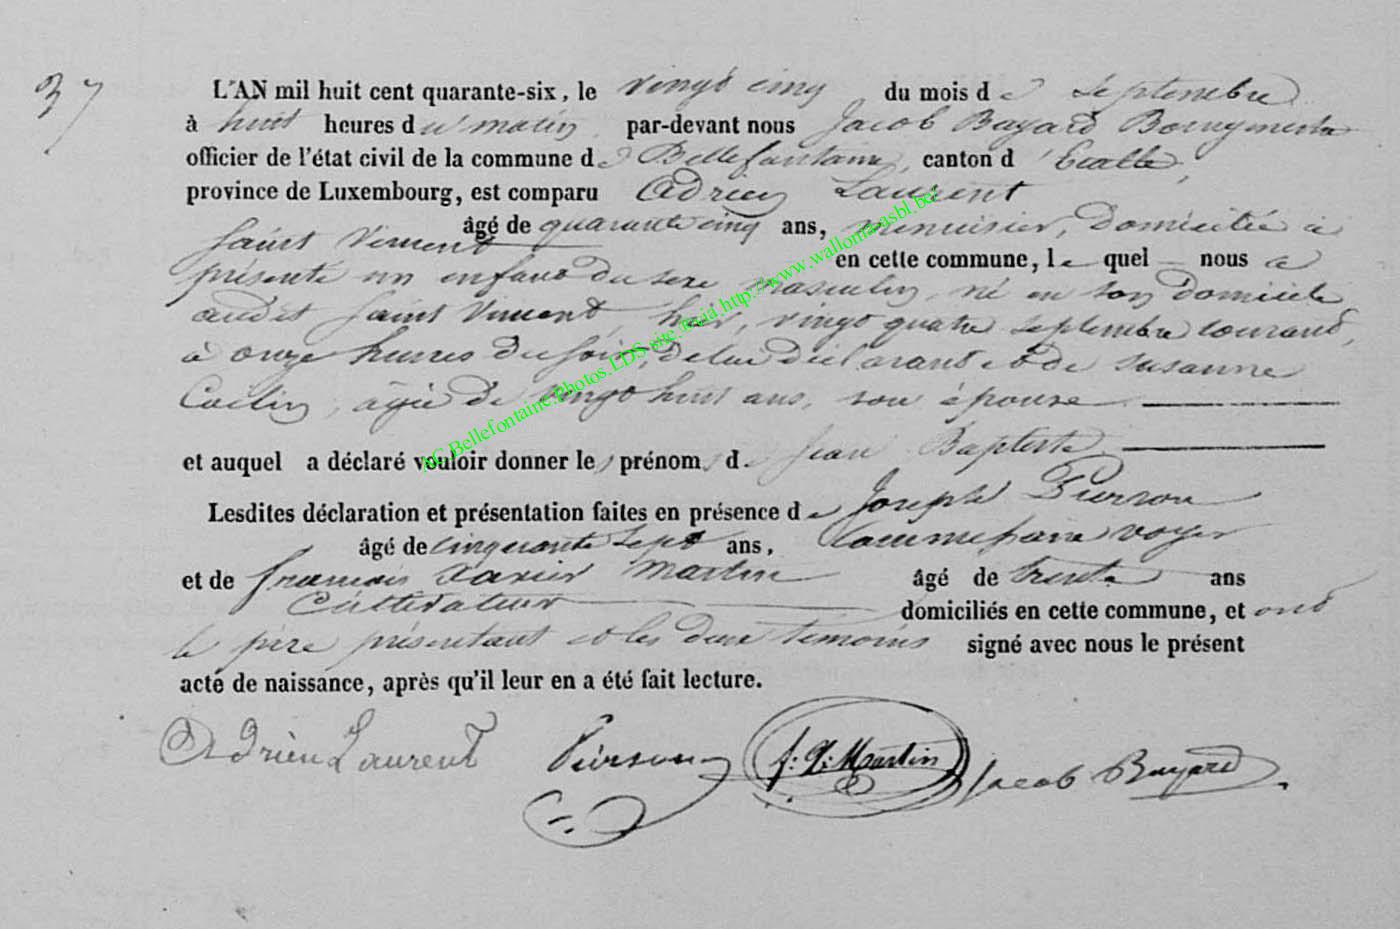 37
L'AN mil huit cent quarante-six, le vingt cinq du mois de Septembre
à huit heures du matin par-devant nous Jacob Bayard Bourgmestre
officier de l'état civil de la commune de Bellefontaine, canton d'Etalle,
province de Luxembourg, est comparu Adrien Laurent
âgé de quarante cinq ans, menuisier, domicilié à
Saint Vincent en cette commune, lequel nous a
présenté un enfant du sexe masculin, né en son domicile
audit Saint Vincent, hier, vingt quatre septembre courant,
à onze heures du soir, de lui déclarant et de Susanne
âgée de vingt huit ans, son épouse
et auquel a déclaré vouloir donner les prénoms de Jean Baptiste
Lesdites déclaration et présentation faites en présence de Joseph Pierson
âgé de cinquante sept ans, Commissaire voyer
et de francois Xavier Martin âgé de trente ans
Cultivateur domiciliés en cette commune, et ont
le père présentant et les deux témoins signé avec nous le présent
acte de naissance, après qu'il leur en a été fait lecture.
Adrien Laurent Pierson f: X: Martin Jacob Bayard
AC.Bellefontaine.Photos.LDS site:.via http://www.wallonia-asbl.be/